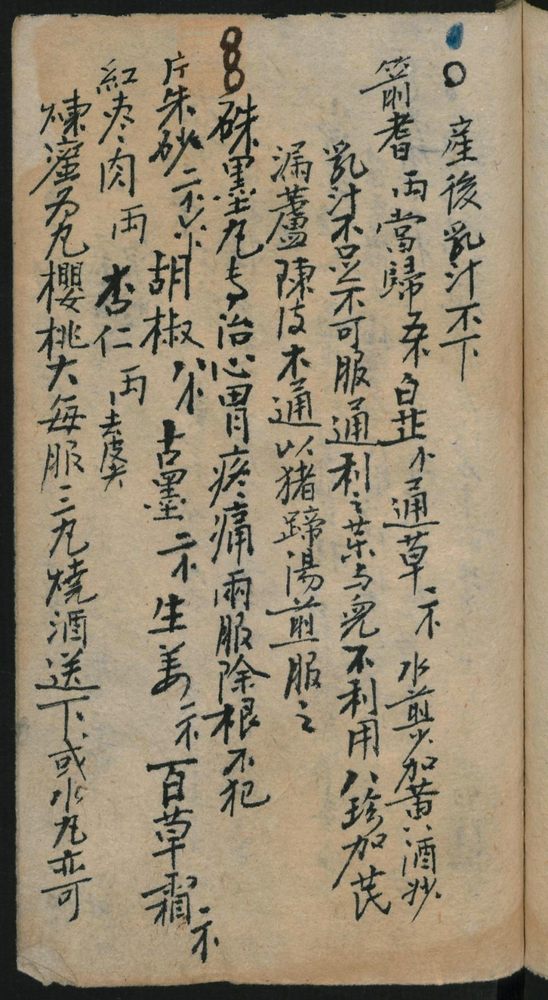 產後乳汁不下
箭耆 両 當歸 白芷 通草 水煎 加黃酒妙
乳汁不足不可服通利之葯与児不利用八珍加芪
漏蘆陳皮木通以猪蹄湯煎服之
硃墨丸専治心胃疼痛両服除根不犯
片朱砂 胡椒 古墨 生姜 百草霜
紅枣肉 両 杏仁 両 去皮尖
煉蜜為丸櫻桃大每服三丸燒酒送下或水丸亦可